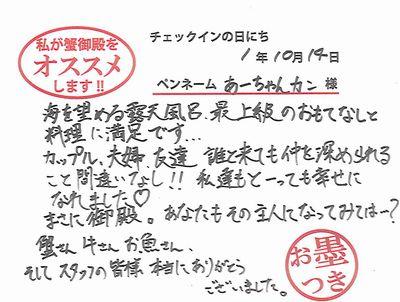 私が蟹御殿を
オススメ
します!!
チェックインの日にち
1年10月14日
ペンネーム あーちゃんカン 様
海を望める露天風呂、最上級のおもてなしと
料理に満足です…
カップル、夫婦、友達 誰と来ても仲を深められる
こと間違いなし!! 私達もとーっても幸せに
なれました♡
まさに御殿。あなたもその主人になってみてはー?
蟹さん 牛さん お魚さん、
そして スタッフの皆様 本当にありがとう
ございました。
お墨
つき